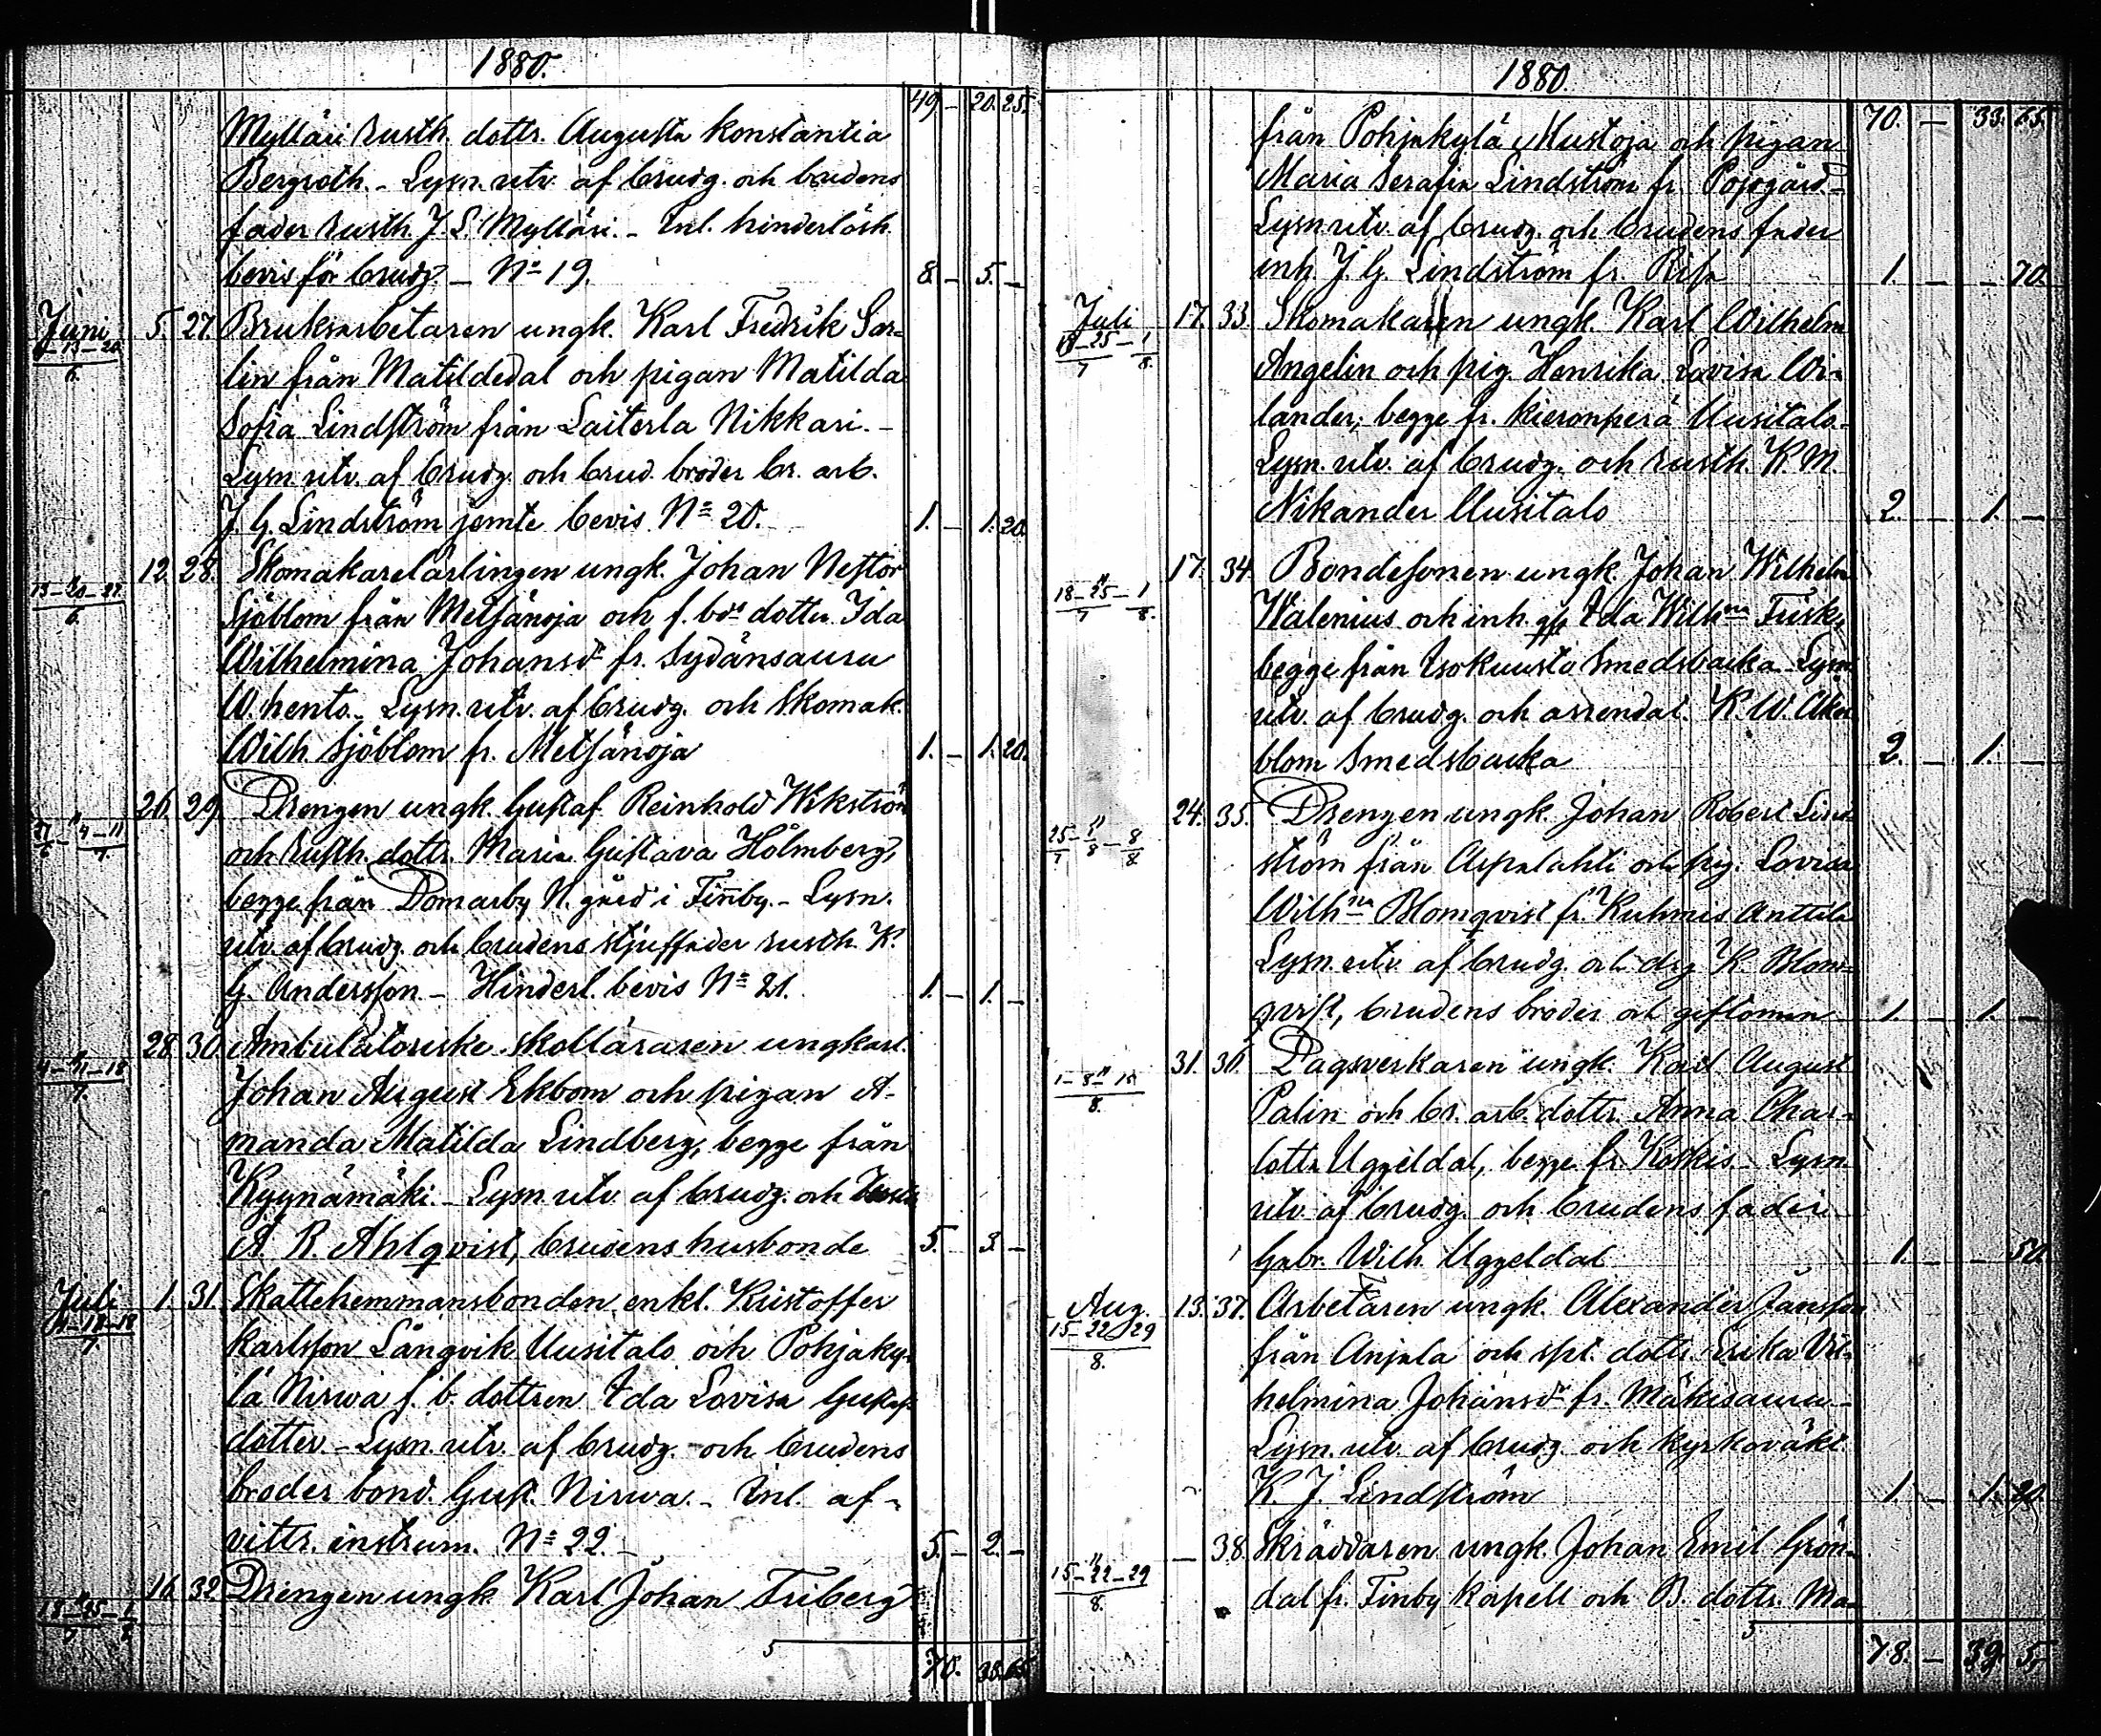 1880.
49 - 20. 25.
Mylläri rusth. dottr. Augusta Konstantia
Bergroth. - Lysn. utv. af brudg. och brudens
fader rusth. J. L. Mylläri. - Inl. hinderlösh.
bevis för brudg. - No 19. 8 - 5. -
Juni 5. 27. Bruksarbetaren ungk. Karl Fredrik Sar-
13-20
6.
lin från Matildedal och pigan Matilda
Sofia Lindström från Laiterla Nikkari. -
Lysn. utv. af brudg. och brud. broder br. arb.
J. G. Lindström jemte bevis No 20. 1. - 1. 20.
12. 28. Skomakarelärlingen ungk. Johan Nestor
13-20-27
6.
Sjöblom från Metsänoja och f. bds dotter Ida
Wilhelmina Johansdr fr. Sydänsauru
W. hento. Lysn. utv. af brudg. och Skomak.
Wilh. Sjöblom fr. Metsänoja 1. - 1. 20.
26. 29. Drengen ungk. Gustaf Reinhold Wikström
27-4-11
6 7.
och rusth. dottr. Maria Gustava Holmberg,
begge från Domarby N. gård i Finnby. - Lysn.
utv. af brudg. och brudens stjuffader rusth. K.
G. Andersson - Hinderl. bevis No 21. 1. - 1. -
28. 30. Ambulatoriske skolläraren ungkarl.
4-11-18
7.
Johan August Ekbom och pigan A-
manda Matilda Lindberg, begge från
Kyynämäki - Lysn. utv. af brudg. och
A. R. Ahlqvist, brudens husbonde 5. - 3. -
Juli 1. 31. Skattehemmansbonden enkl. Kristoffer
7.
Karlsson Långvik Uusitalo och Pohjaky-
lä Nirwa f. b. dottren Ida Lovisa Gustafs
dotter. - Lysn. utv. af brudg. och brudens
broder bond. Gust. Nirwa. - Inl. af-
vittr. instrum. No 22. - 5. - 2. -
16. 32. Drengen ungk. Karl Johan Friberg
18-25-1
7 8
70. - 33. 65.
1880.
70. - 33. 65.
från Pohjakylä Mustoja och pigan
Maria Serafia Lindström fr. Pojogård. -
Lysn. utv. af brudg. och brudens fader
inh. J. G. Lindström fr. 1. - - 70.
Juli 17. 33. Skomakaren ungk. Karl Wilhelm
18-25-1
7 8.
Angelin och pig. Henrika Lovisa Wi-
lander, begge fr. Kieronperä Uusitalo. -
Lysn. utv. af brudg. och rusth. K. M.
Nikander Uusitalo 2. - 1. -
17. 34. Bondesonen ungk. Johan Wilhelm
18-25-1
7 8.
Walenius och inh. Ida Wilhna Fusk,
begge från Isokuusto Smedsbacka Lysn.
utv. af brudg. och arrendat. K. W. Åker-
blom Smedsbacka 2. - 1. -
24. 35. Drengen ungk. Johan Robert Lind-
25-1-8
7 8 8
ström från Aspalahti och pig. Lovisa
Wilhna Blomqvist fr. Kuhmis Anttila
Lysn. utv. af brudg. och drg K. Blom-
qvist, brudens broder och giftoman 1. - 1. -
31. 36. Dagsverkaren ungk. Karl August
1-8-15
8.
Palin och br. arb. dottr. Anna Char-
lotta Uggeldal, begge fr. Koskis - Lysn.
utv. af brudg. och brudens fader
Gabr. Wilh. Uggeldal 1. - - 50.
Aug. 13. 37. Arbetaren ungk. Alexander Jansson
15-22-29
8.
från Anjala och spl. dottr. Erika Vil-
helmina Johansdr fr. Mäkisauru -
Lysn. utv. af brudg. och kyrkovakt.
K. J. Lindström 1. - 1. 20.
- 38. Skräddaren ungk. Johan Emil Grön-
15-22-29
8.
dal fr. Finby Kapell och B. dottr. Ma-
78. - 39. 5.